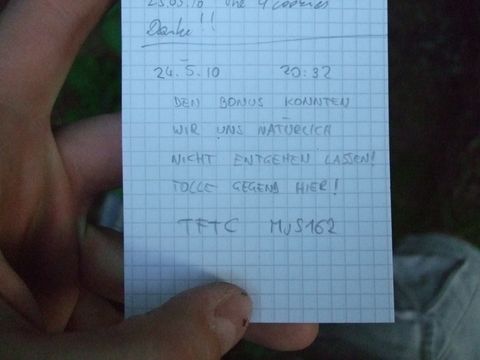 23.05.10 The 4 cookies
Danke!!
24.5.10 20:32
DEN BONUS KONNTEN
WIR UNS NATÜRLICH
NICHT ENTGEHEN LASSEN!
TOLLE GEGEND HIER!
TFTC MJS162